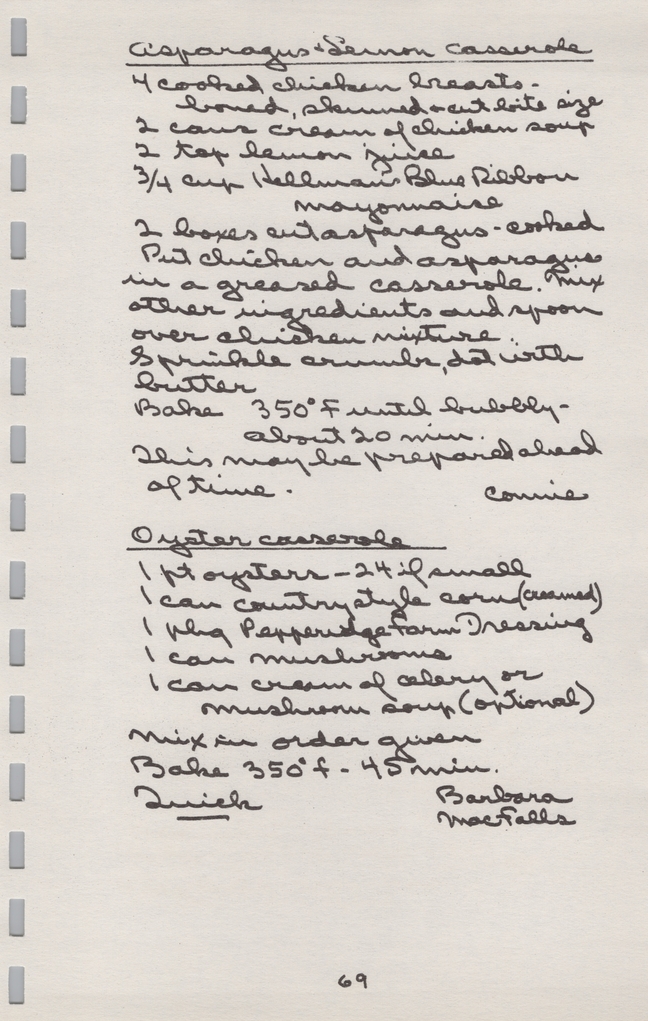 Asparagus & Lemon Casserole
4 cooked chicken breasts-
boned, skinned & cut bite size
2 cans cream of chicken soup
2 tsp lemon juice
3/4 cup Hellman's Blue Ribbon
mayonnaise
2 boxes cut asparagus - cooked
Put chicken and asparagus
in a greased casserole. Mix
other ingredients and spoon
over chicken mixture.
Sprinkle crumbs, dot with
butter
Bake 350°F until bubbly-
about 20 min.
This may be prepared ahead
of time.
Connie
Oyster casserole
1 pt oysters - 24 if small
1 can country style corn (creamed)
1 pkg Pepperidge Farm Dressing
1 can mushrooms
1 can cream of celery or
mushroom soup (optional)
Mix in order given
Bake 350°F - 45 min.
Quick
Barbara
MacFalls
69